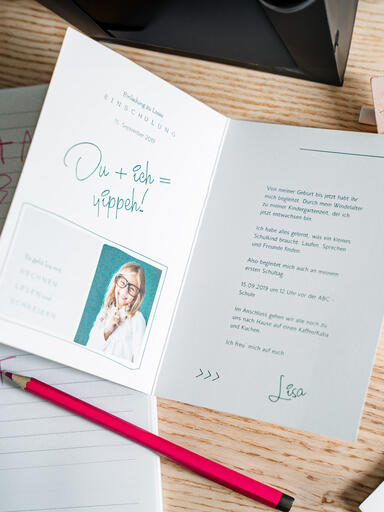 Einladung zu Lisas
EINSCHULUNG
15. September 2019
Du + ich =
yippeh!
So geht's los mit
RECHNEN
LESEN und
SCHREIBEN
Von meiner Geburt bis jetzt habt ihr
mich begleitet. Durch mein Windelalter
zu meiner Kindergartenzeit, der ich
jetzt entwachsen bin.
Ich habe alles gelernt, was ein kleines
Schulkind braucht: Laufen, Sprechen
und Freunde finden.
Also begleitet mich auch an meinem
ersten Schultag
15.09.2019 um 12 Uhr vor der ABC -
Schule
Im Anschluss gehen wir alle noch zu
uns nach Hause auf einen Kaffee/Kaba
und Kuchen.
Ich freu' mich auf euch
>>>
Lisa